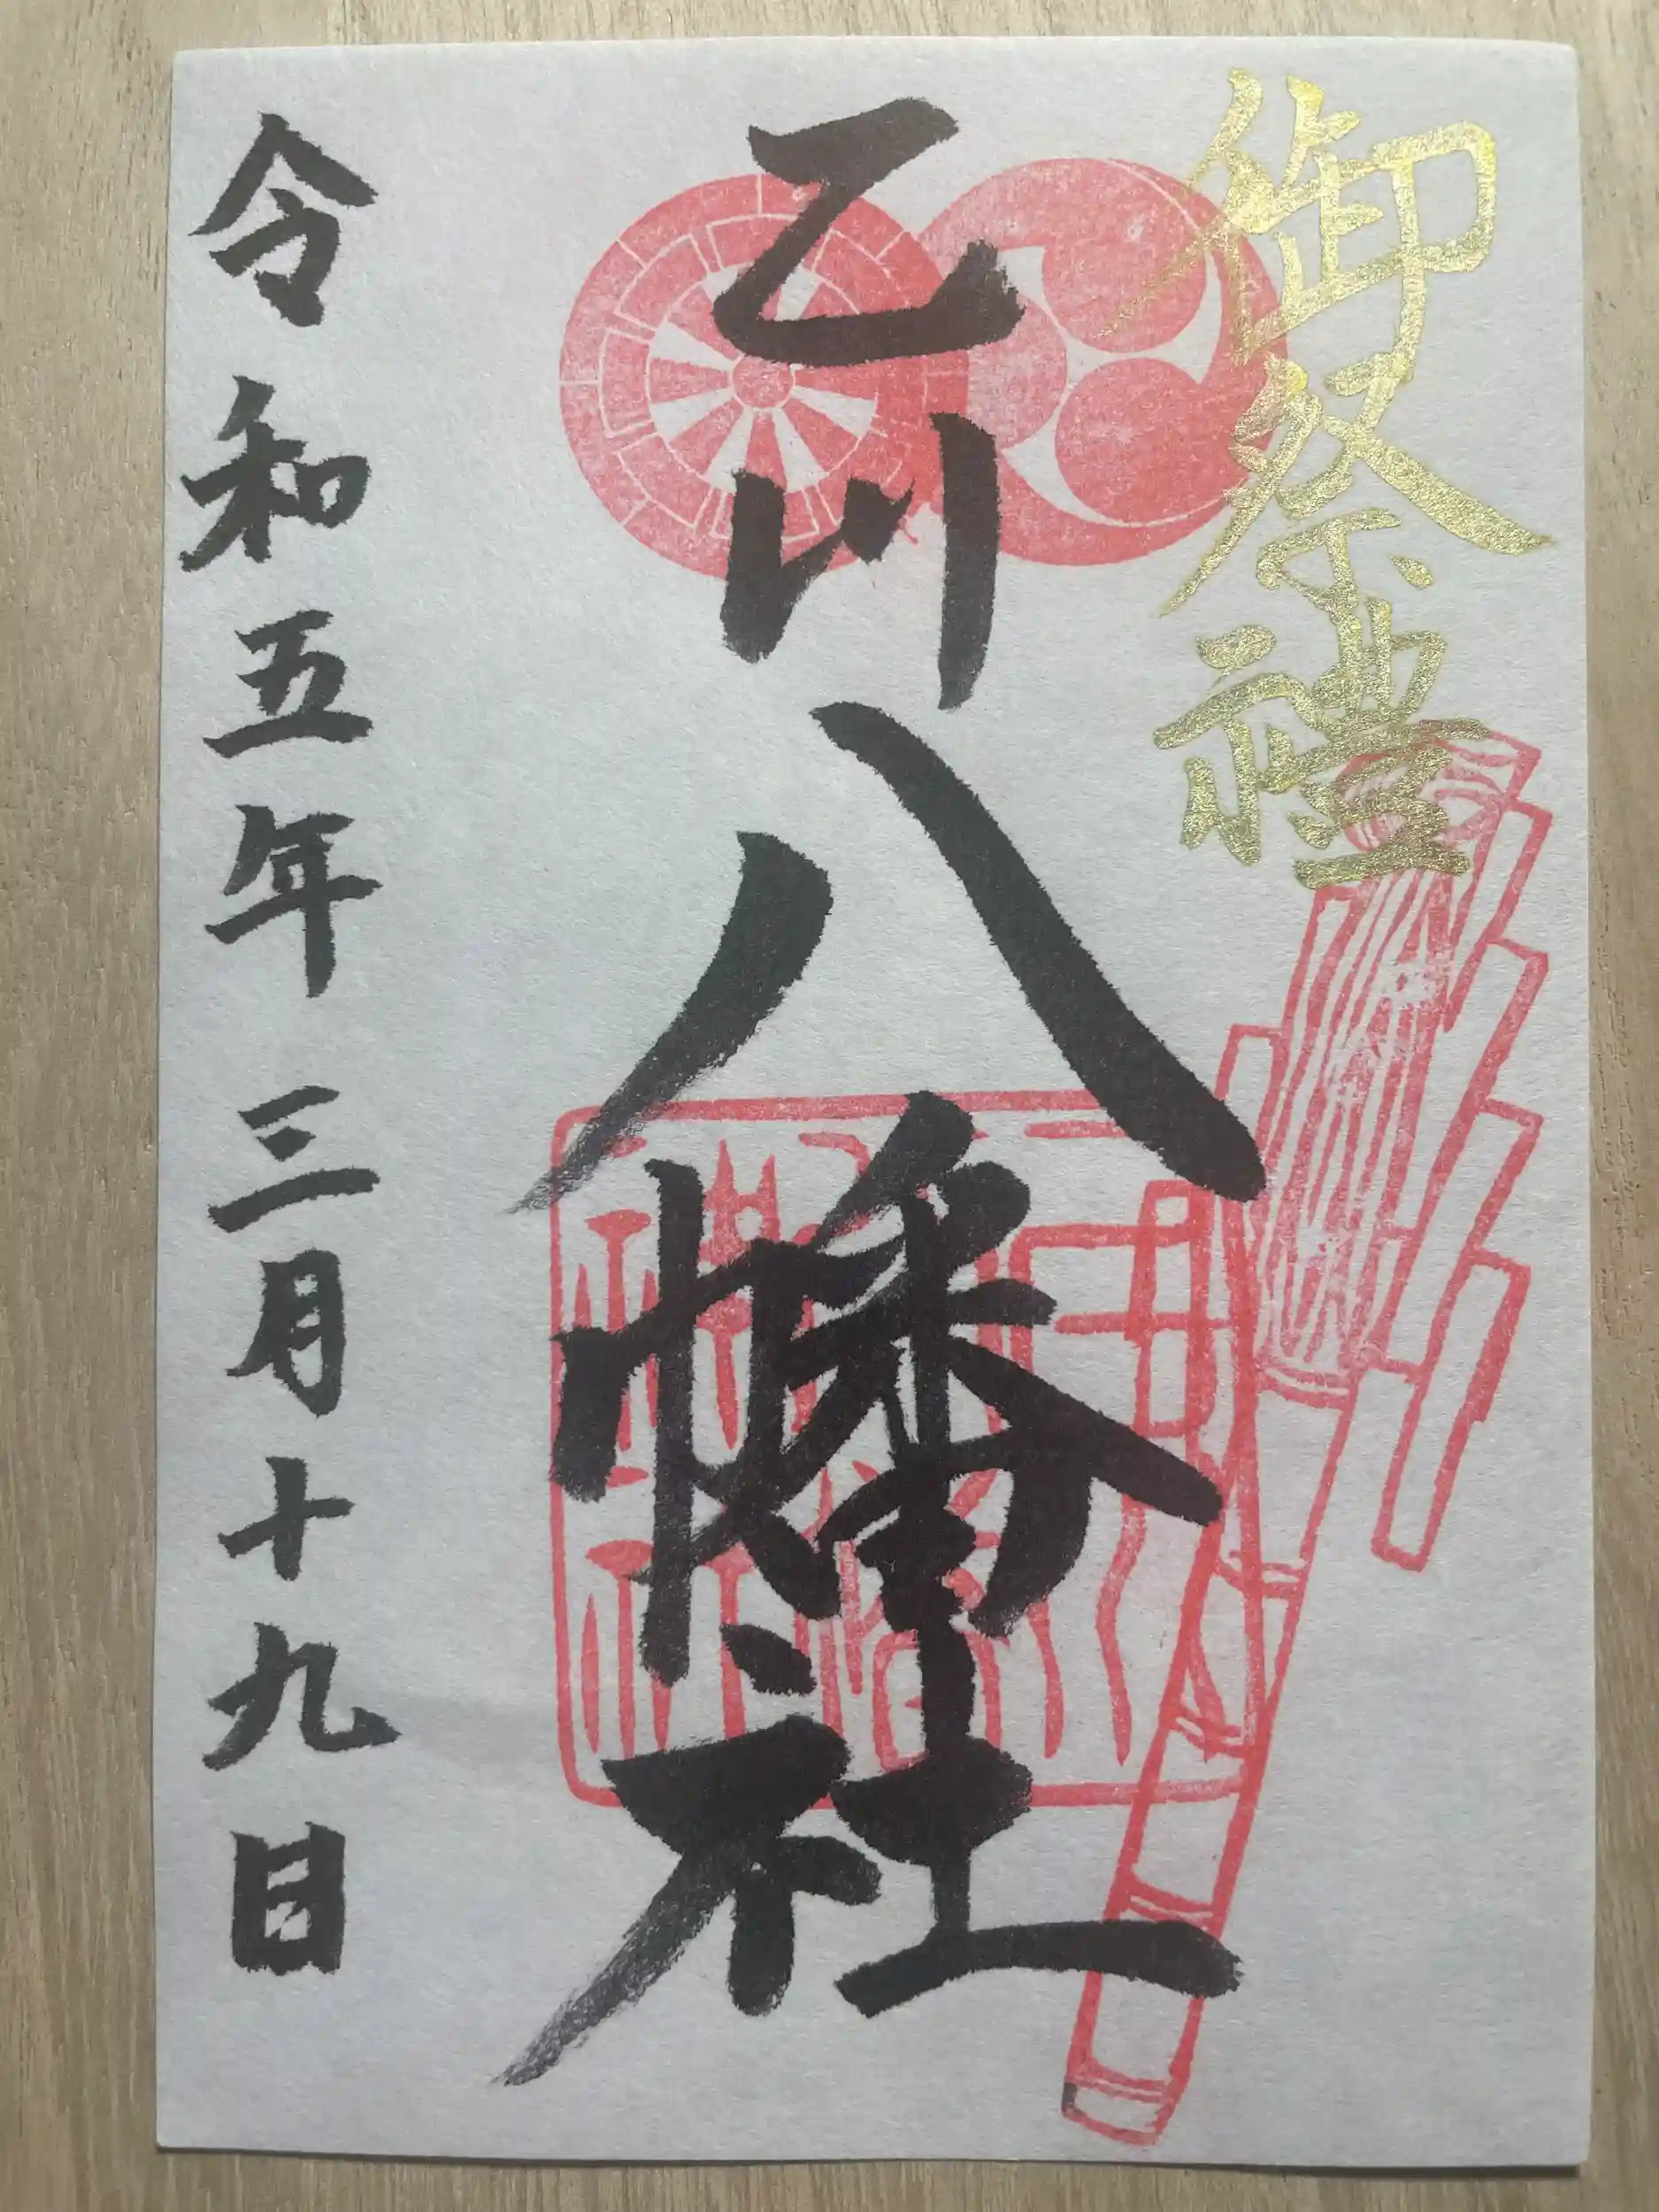 御祭禮
乙川八幡社
令和五年 三月十九日